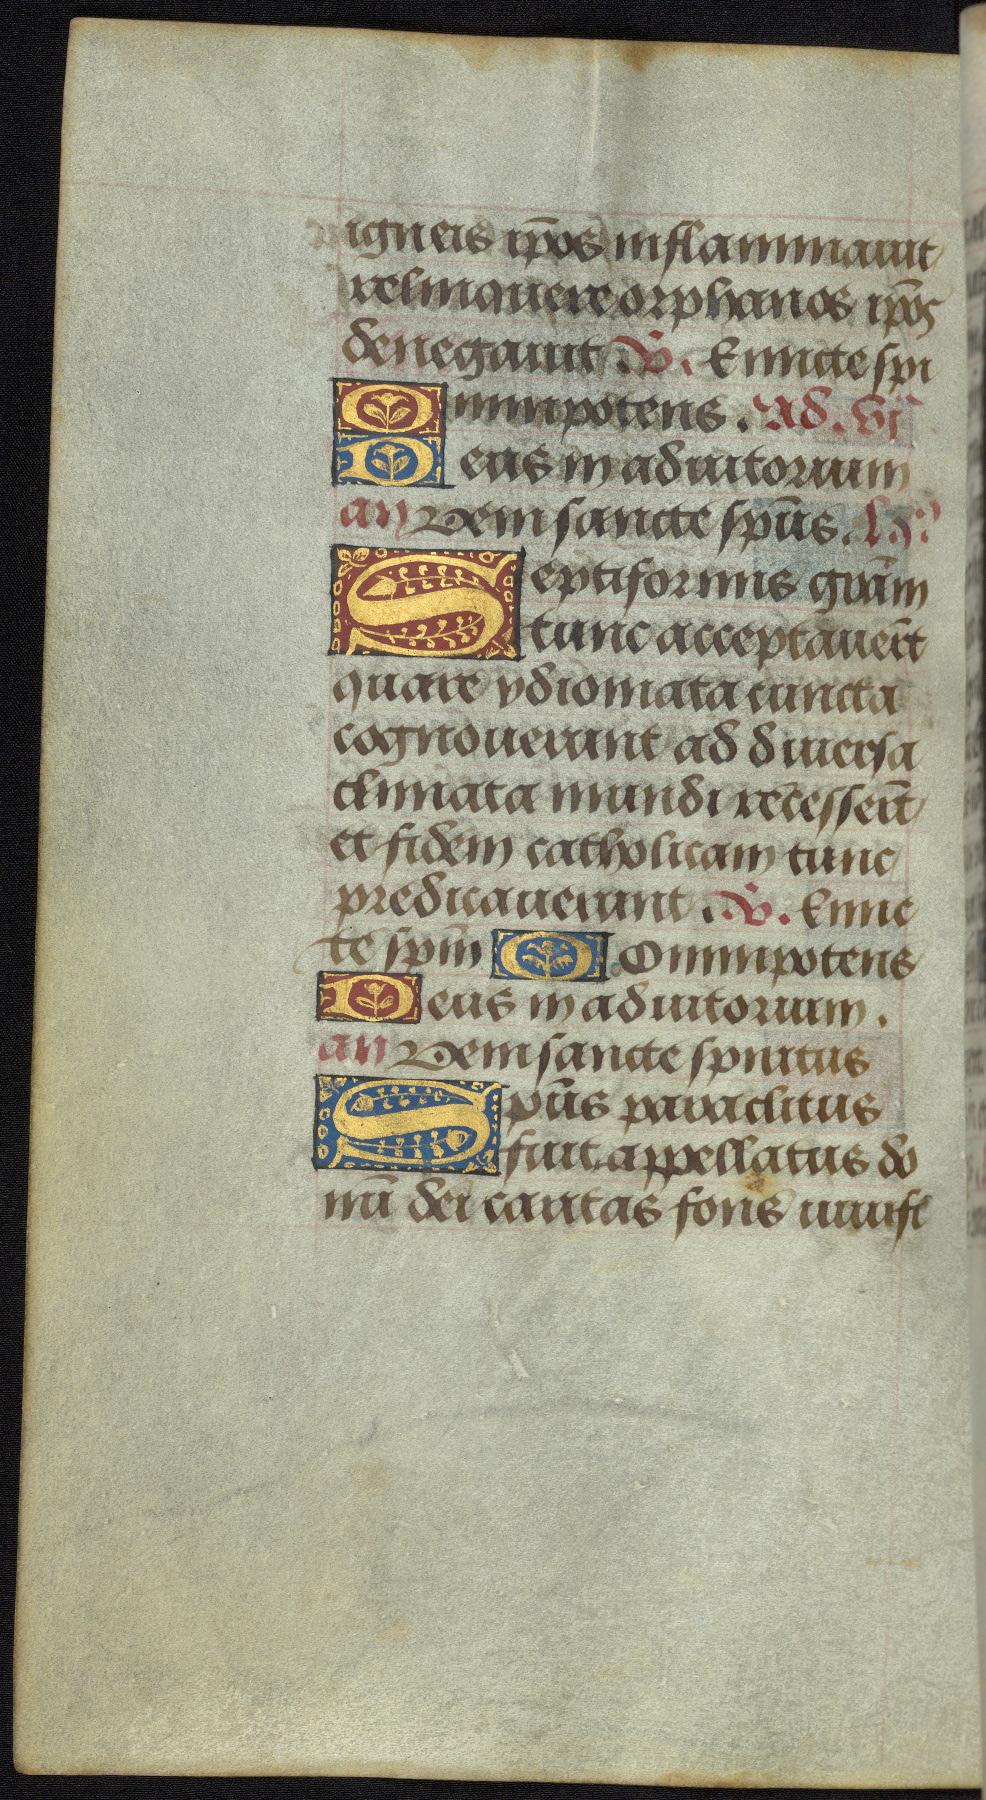 igneis ip̄os inflammauit
relinquere orphanos ip̄os
denegauit. V̄. Emitte spi
Omnipotens. Ad. vi
Deus in adiutorium
an Veni sancte sp̄us. hy?
Septiformis gr̄am
tunc acceptauer̄t
quare ydiomata cuncta
cognouerunt ad diuersa
climata mundi recesser̄t
et fidem catholicam tunc
predicauerunt. V̄. Emic
te sp̄m O Omnipotens
Deus in adiutorium.
an Veni sancte spiritus
Sp̄us paraclitus
fuit appellatus do
nū dei caritas fons viuifi